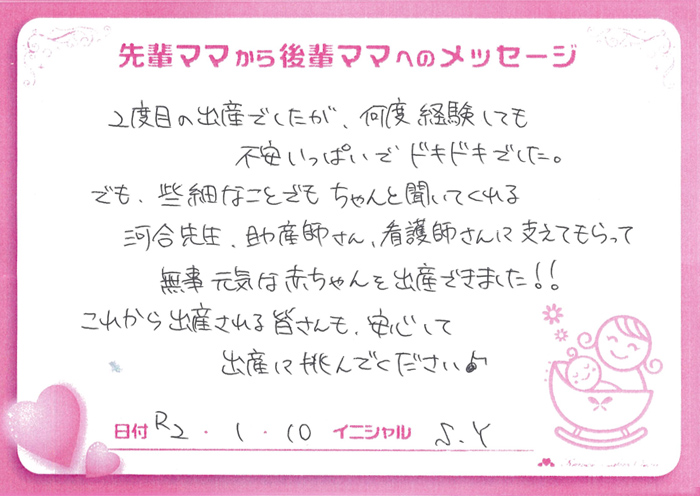 先輩ママから後輩ママへのメッセージ
2度目の出産でしたが、何度経験しても
不安いっぱいでドキドキでした。
でも、些細なことでもちゃんと聞いてくれる
河合先生、助産師さん、看護師さんに支えてもらって
無事元気な赤ちゃんを出産できました!!
これから出産される皆さんも、安心して
出産に挑んでください♪
日付 R2・1・10 イニシャル S.Y